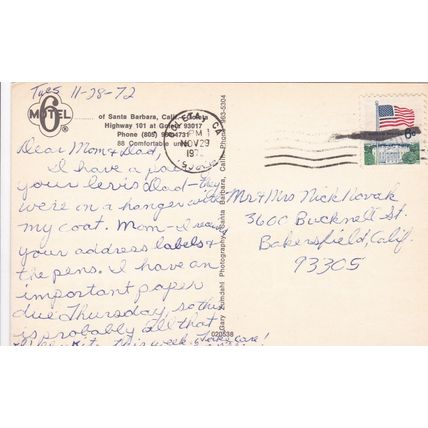 Tues 11-28-72
MOTEL 6®
of Santa Barbara, Calif. - Goleta
Highway 101 at Goleta 93017
Phone (805) 964-4731
88 Comfortable units
Dear Mom & Dad,
I have a pair
your levis Dad - they
were in a hanger with
my coat. Mom - I received
your address labels &
the pens. I have an
important paper
due Thursday, so this
is probably all that
this week. Take care!
CA
PM
NOV 29
Mr & Mrs Nick Novak
3600 Bucknell St.
Bakersfield, Calif.
93305
Gary Zumdahl Photography, Santa Barbara, Calif. Phone 963-5304
020538
6c